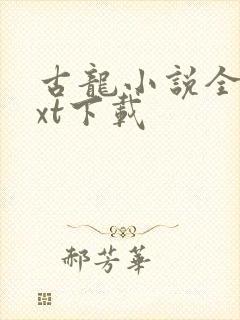 古龍小説全
xt下載
郝芳華